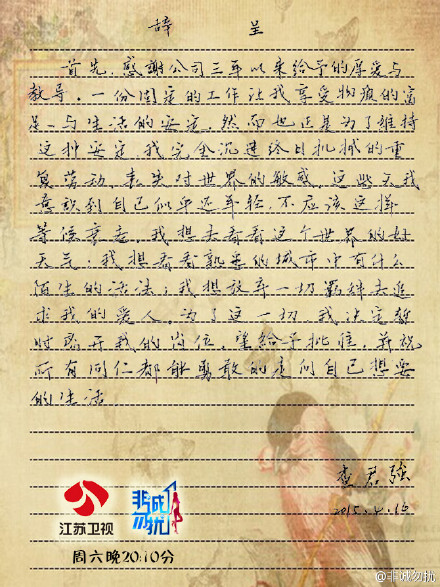 辞 呈
首先，感谢公司三年以来给予的厚爱与
教导，一份固定的工作让我享受物质的富
足、与生活的安定，然而也正是为了维持
这种安定，我完全沉迷终日机械的重
复劳动，丧失对世界的敏感，这些天我
意识到自己似乎还年轻，不应该这样
等候衰老，我想去看看这个世界的好
天气；我想看看熟悉的城市中有什么
陌生的活法；我想放弃一切羁绊去追
求我的爱人，为了这一切，我决定暂
时离开我的岗位，望给予批准，并祝
所有同仁都能勇敢的走向自己想要
的生活。
查君强
2015.4.16
江苏卫视
非诚勿扰
周六晚20:10分
@非诚勿扰